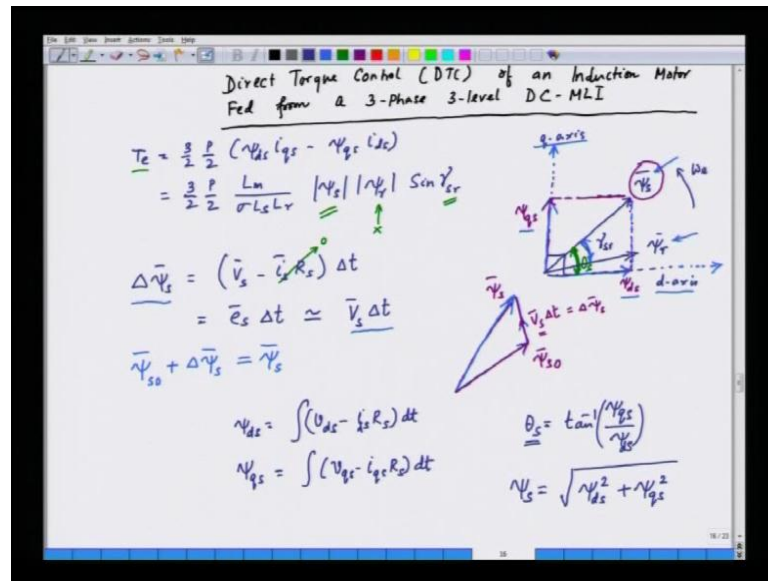 File Edit View Insert Actions Tools Help
Direct Torque Control (DTC) of an Induction Motor
Fed from a 3-Phase 3-level DC-MLI
Te = 3/2 P/2 (ψds iqs - ψqs ids)
= 3/2 P/2 Lm/σLsLr |ψs| |ψr| Sin γsr
x
Δψ̄s = (v̄s - īsRs) Δt
0
= ēs Δt ≃ v̄s Δt
ψ̄so + Δψ̄s = ψ̄s
q-axis
ψ̄s
ωe
ψqs
γsr
ψ̄r
θs
ψds
d-axis
ψ̄s
v̄sΔt = Δψ̄s
ψ̄so
ψds = ∫(vds - idsRs) dt
ψqs = ∫(vqs - iqsRs) dt
θs = tan⁻¹(ψqs/ψds)
ψs = √ψds² + ψqs²
16/23
36